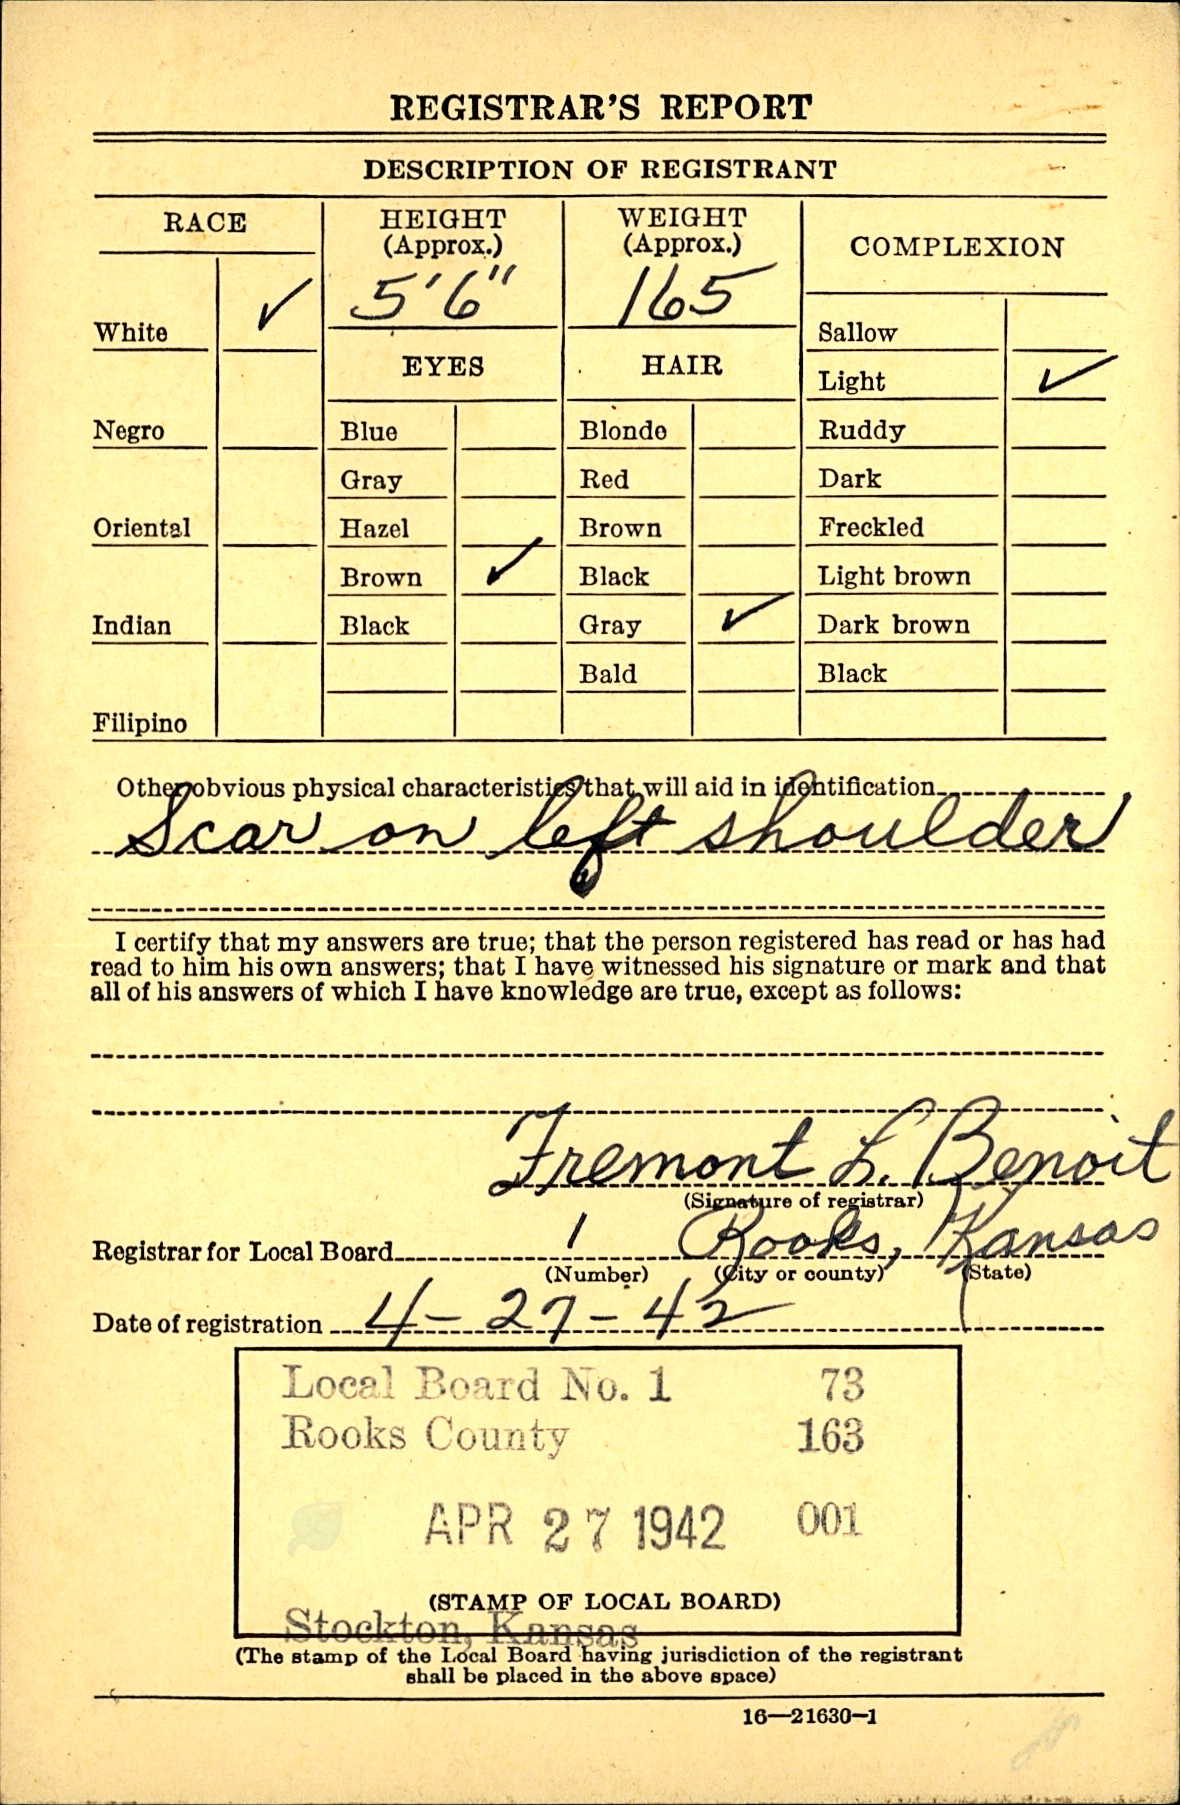 REGISTRAR'S REPORT
DESCRIPTION OF REGISTRANT
RACE HEIGHT (Approx.) WEIGHT (Approx.) COMPLEXION
5'6" 165
White ✓ Sallow
EYES HAIR
Light ✓
Negro Blue Blonde Ruddy
Gray Red Dark
Oriental Hazel Brown Freckled
Brown ✓ Black Light brown
Indian Black Gray ✓ Dark brown
Bald Black
Filipino
Other obvious physical characteristics that will aid in identification
Scar on left shoulder
I certify that my answers are true; that the person registered has read or has had
read to him his own answers; that I have witnessed his signature or mark and that
all of his answers of which I have knowledge are true, except as follows:
Fremont L. Benoit
(Signature of registrar)
Registrar for Local Board 1 Rooks, Kansas
(Number) (City or county) (State)
Date of registration 4-27-42
Local Board No. 1 73
Rooks County 163
APR 27 1942 001
(STAMP OF LOCAL BOARD)
Stockton, Kansas
(The stamp of the Local Board having jurisdiction of the registrant
shall be placed in the above space)
16—21630-1